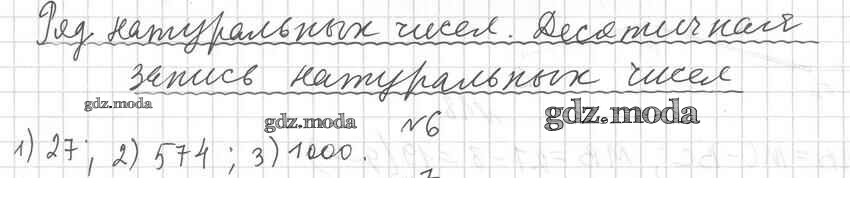 Ряд натуральных чисел. Десятичная
запись натуральных чисел
gdz.moda
gdz.moda
gdz.moda
№6
1) 27; 2) 574; 3) 1000.